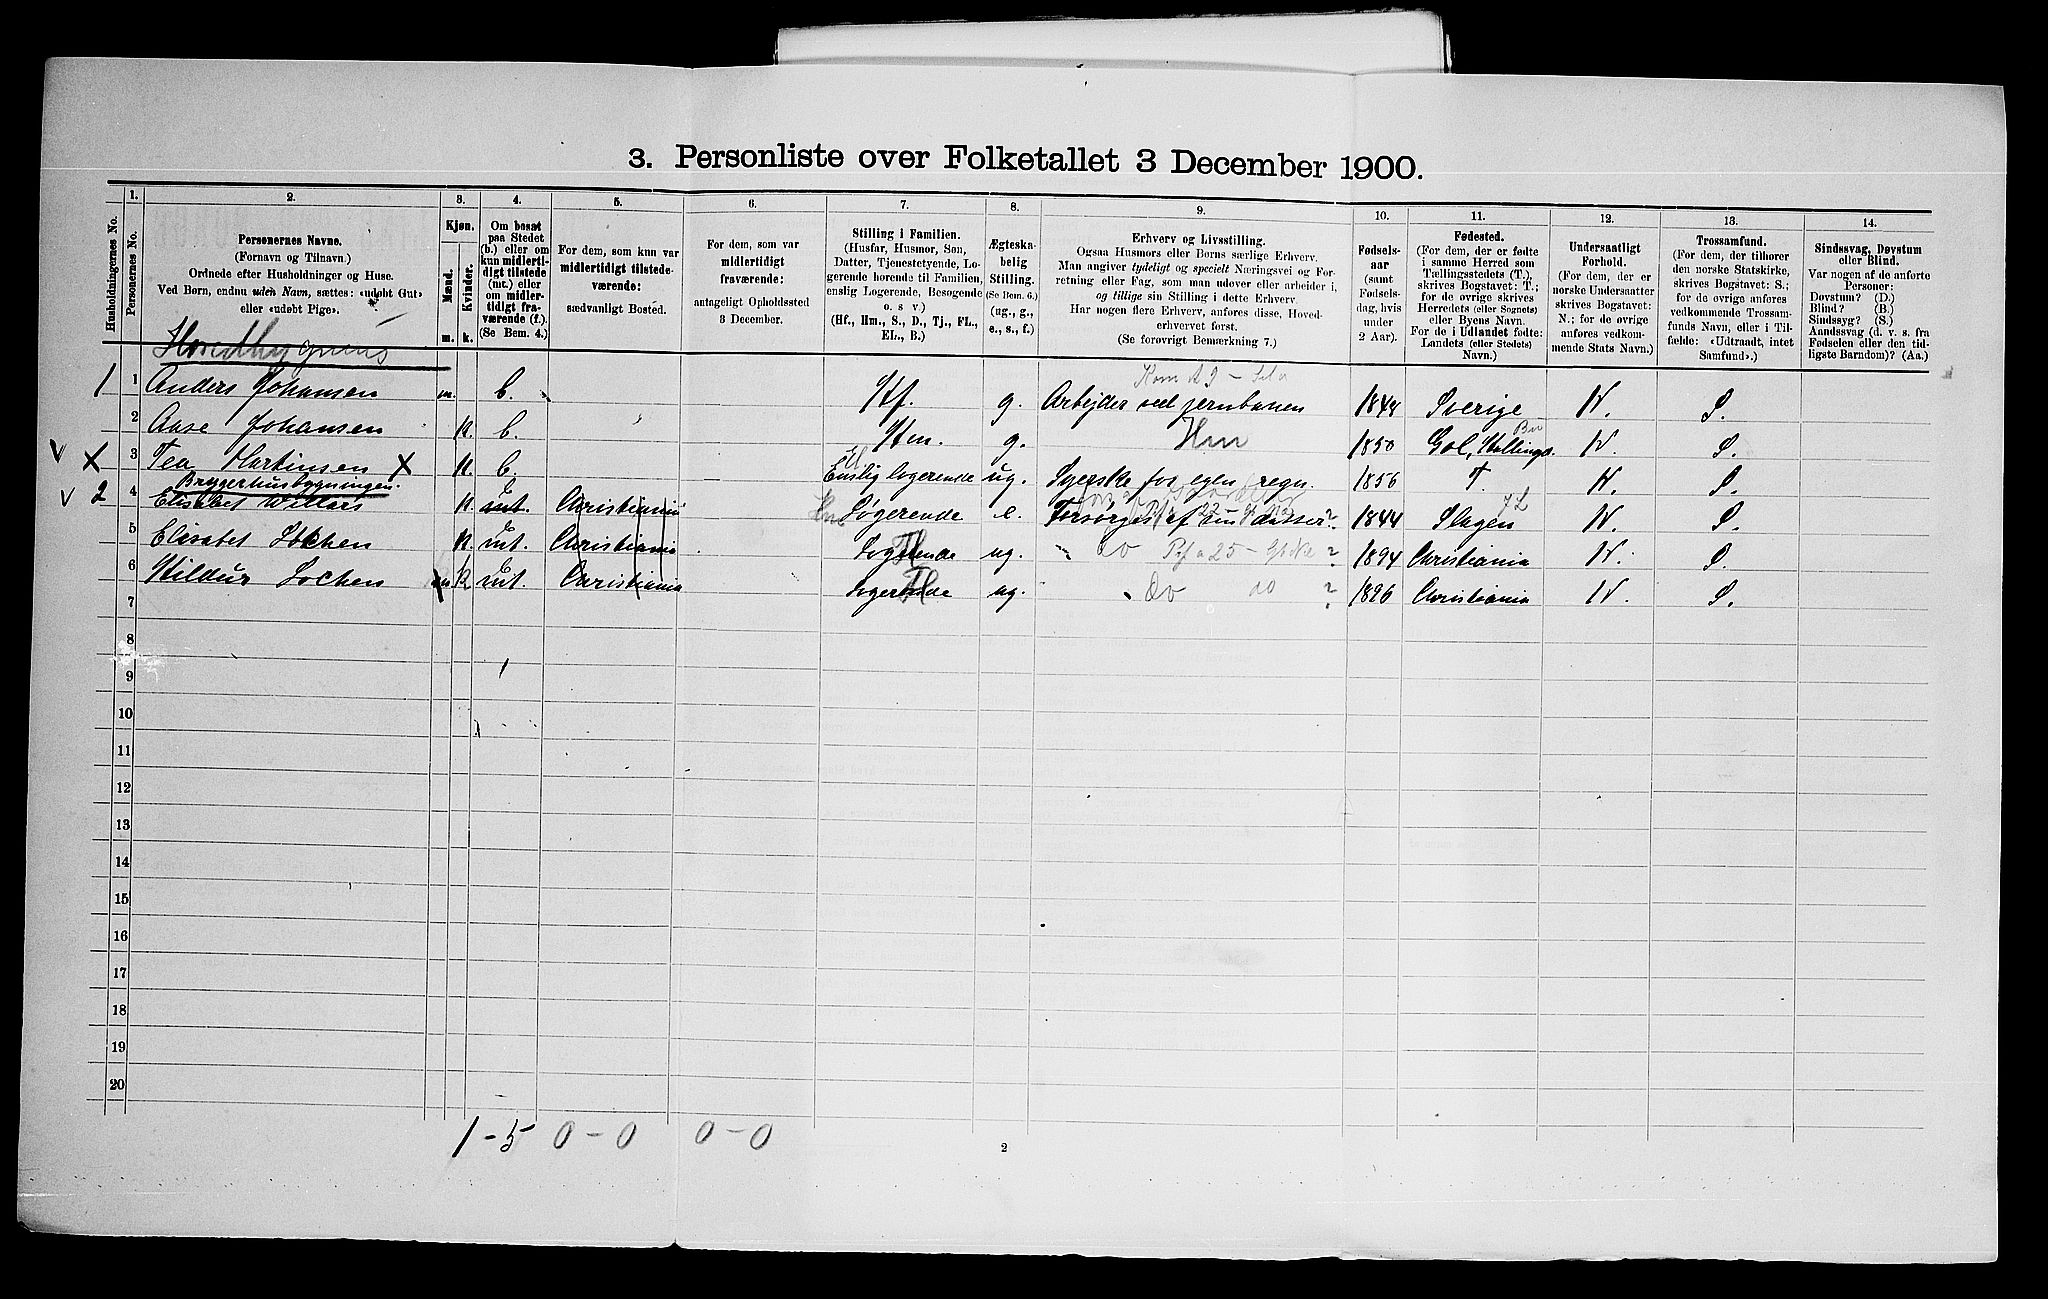 3. Personliste over Folketallet 3 December 1900.
1. 2. 3. 4. 5. 6. 7. 8. 9. 10. 11. 12. 13. 14.
Husholdningernes No.
Personernes No.
Personernes Navne.
(Fornavn og Tilnavn.)
Ordnede efter Husholdninger og Huse.
Ved Børn, endnu uden Navn, sættes: «udøbt Gut»
eller «udøbt Pige».
Kjøn.
Mænd.
Kvinder.
m. k.
Om bosat
paa Stedet
(b.) eller om
kun midlerti-
digt tilstede
(mt.) eller
om midler-
tidigt fra-
værende (f.)
(Se Bem. 4.)
For dem, som kun var
midlertidigt tilstede-
værende:
sædvanligt Bosted.
For dem, som var
midlertidigt
fraværende:
antageligt Opholdssted
3 December.
Stilling i Familien.
(Husfar, Husmor, Søn,
Datter, Tjenestetyende, Lo-
gerende hørende til Familien,
enslig Logerende, Besøgende
o. s v.)
(Hf., Hm., S., D., Tj., FL.,
EL., B.)
Ægteska-
belig
Stilling.
(Se Bem. 6.)
(ug., g.,
e., s., f.)
Erhverv og Livsstilling.
Ogsaa Husmors eller Børns særlige Erhverv.
Man angiver tydeligt og specielt Næringsvei og For-
retning eller Fag, som man udøver eller arbeider i,
og tillige sin Stilling i dette Erhverv.
Har nogen flere Erhverv, anføres disse, Hoved-
erhvervet først.
(Se forøvrigt Bemærkning 7.)
Fødsels-
aar
(samt
Fødsels-
dag, hvis
under
2 Aar).
Fødested.
(For dem, der er fødte
i samme Herred som
Tællingsstedets (T.),
skrives Bogstavet: T.;
for de øvrige skrives
Herredets (eller Sognets)
eller Byens Navn.
For de i Udlandet fødte:
Landets (eller Stedets)
Navn.)
Undersaatligt
Forhold.
(For dem, der er
norske Undersaatter
skrives Bogstavet:
N.; for de øvrige
anføres vedkom-
mende Stats Navn.)
Trossamfund.
(For dem, der tilhører
den norske Statskirke,
skrives Bogstavet: S.;
for de øvrige anføres
vedkommende Trossam-
funds Navn, eller i Til-
fælde: «Udtraadt, intet
Samfund».)
Sindssvag, Døvstum
eller Blind.
Var nogen af de anførte
Personer:
Døvstum? (D.)
Blind? (B.)
Sindssyg? (S.)
Aandssvag (d. v. s. fra
Fødselen eller den tid-
ligste Barndom)? (Aa.)
Hovedbygnens
1 1 Anders Johansen m. b. Hf. g. Arbejder ved jernbanen 1848 Sverige N. S.
2 Aase Johansen k. b. Hm. g. Hm 1850 Gol, Hallingd. Bu N. S.
3 Tea Martinsen X k. b. El Enslig logerende ug. Syerske for egen regn. 1856 T. N. S.
Bryggerhusbygningen.
2 4 Elisabet Willars k. mt. Christiania Logerende e. Forsørges af sin 1844 Slagen N. S.
5 Elisabet Lochen k. mt. Christiania Logerende Fl ug. do 1894 Christiania N. S.
6 Hildur Lochen k mt. Christiania Logerende Fl ug. do do ? 1896 Christiania N. S.
7
8
9
10
11
12
13
14
15
16
17
18
19
20
1-5 0-0 0-0
2